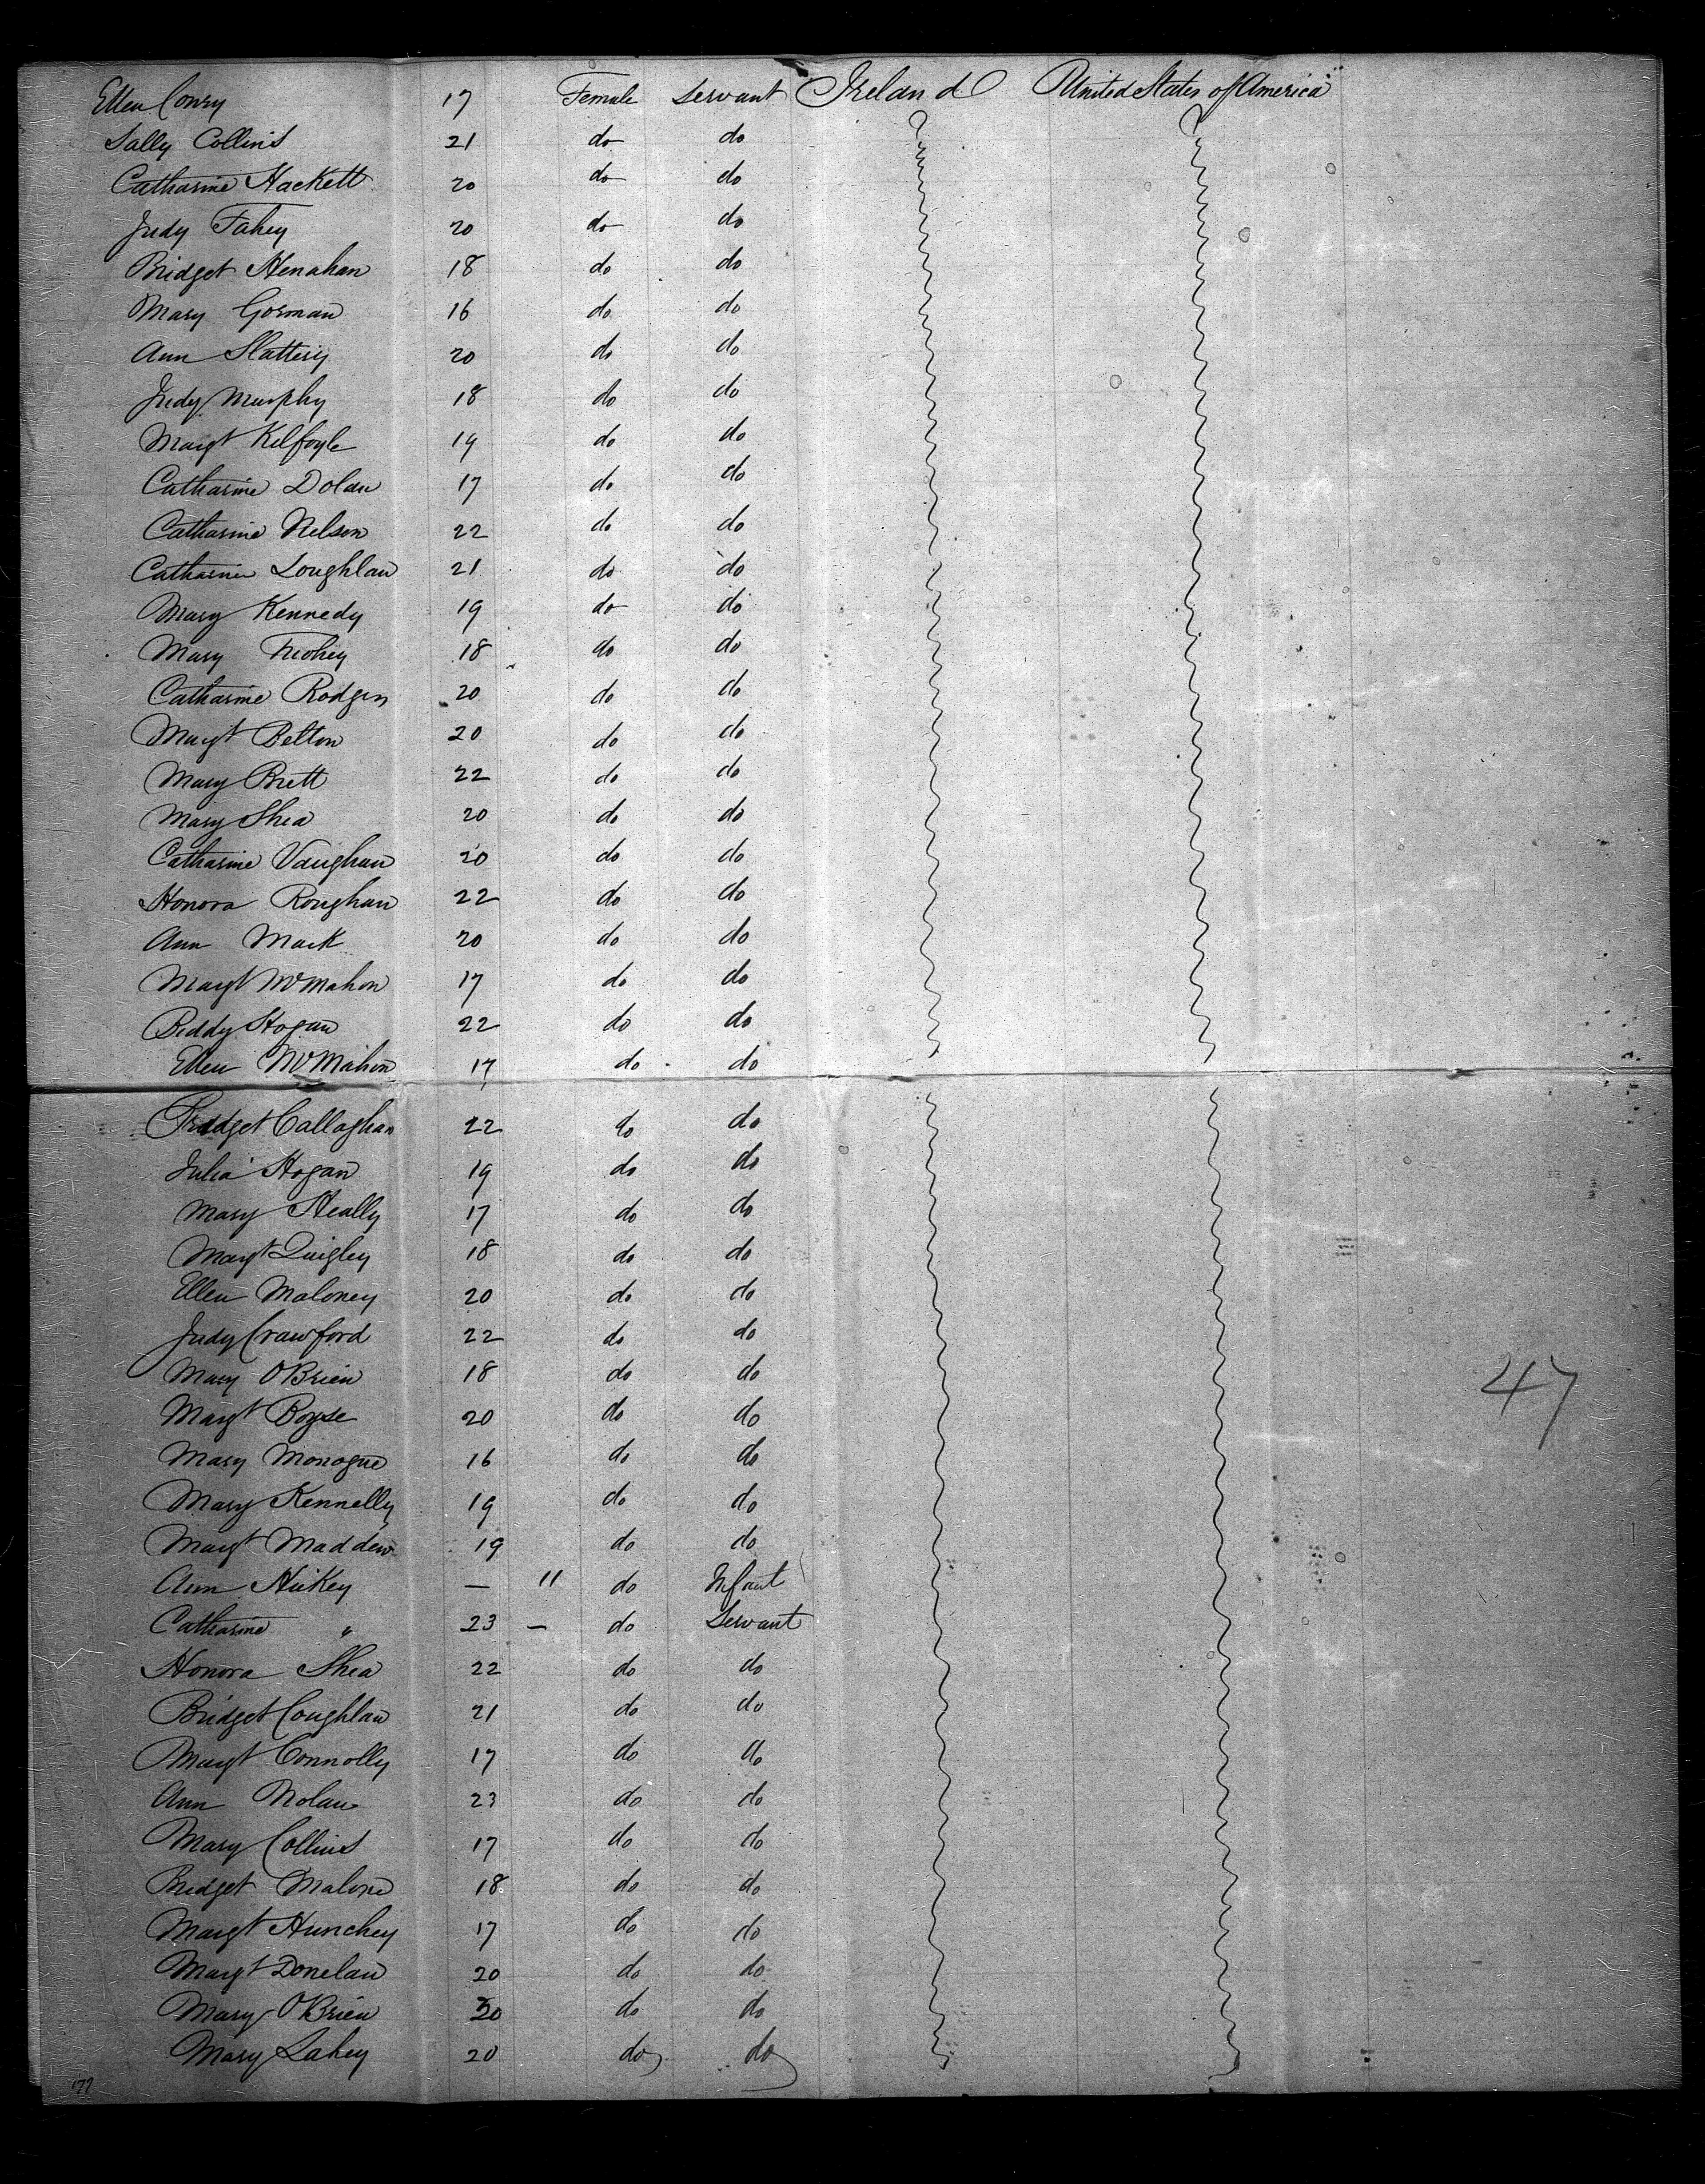 Ellen Conry 17 Female Servant Ireland United States of America
Sally Collins 21 do do
Catharine Hackett 20 do do
Judy Fahey 20 do do
Bridget Henahan 18 do do
Mary Gorman 16 do do
Ann Slattery 20 do do
Judy Murphy 18 do do
Margt Kilfoyle 19 do do
Catharine Dolan 17 do do
Catharine Nelson 22 do do
Catharine Loughlan 21 do do
Mary Kennedy 19 do do
Mary 18 do do
Catharine Rodgers 20 do do
Margt Belton 20 do do
Mary Brett 22 do do
Mary Shea 20 do do
Catharine Vaughan 20 do do
Honora Roughan 22 do do
Ann Mack 20 do do
Margt McMahon 17 do do
Biddy Hogan 22 do do
Ellen McMahon 17 do do
Bridget Callaghan 22 do do
Julia Hogan 19 do do
Mary Heally 17 do do
Margt Quigley 18 do do
Ellen Maloney 20 do do
Judy Crawford 22 do do
Mary OBrien 18 do do
Margt Boyse 20 do do
Mary Monogue 16 do do
Mary Kennelly 19 do do
Margt Madden 19 do do
Ann Hickey — " do Infant
Catharine " 23 — do Servant
Honora Shea 22 do do
Bridget Coughlan 21 do do
Margt Connolly 17 do do
Ann Nolan 23 do do
Mary Collins 17 do do
Bridget Malone 18 do do
Margt Hunchey 17 do do
Margt Donelan 20 do do
Mary OBrien 20 do do
Mary Lahey 20 do do
47
177